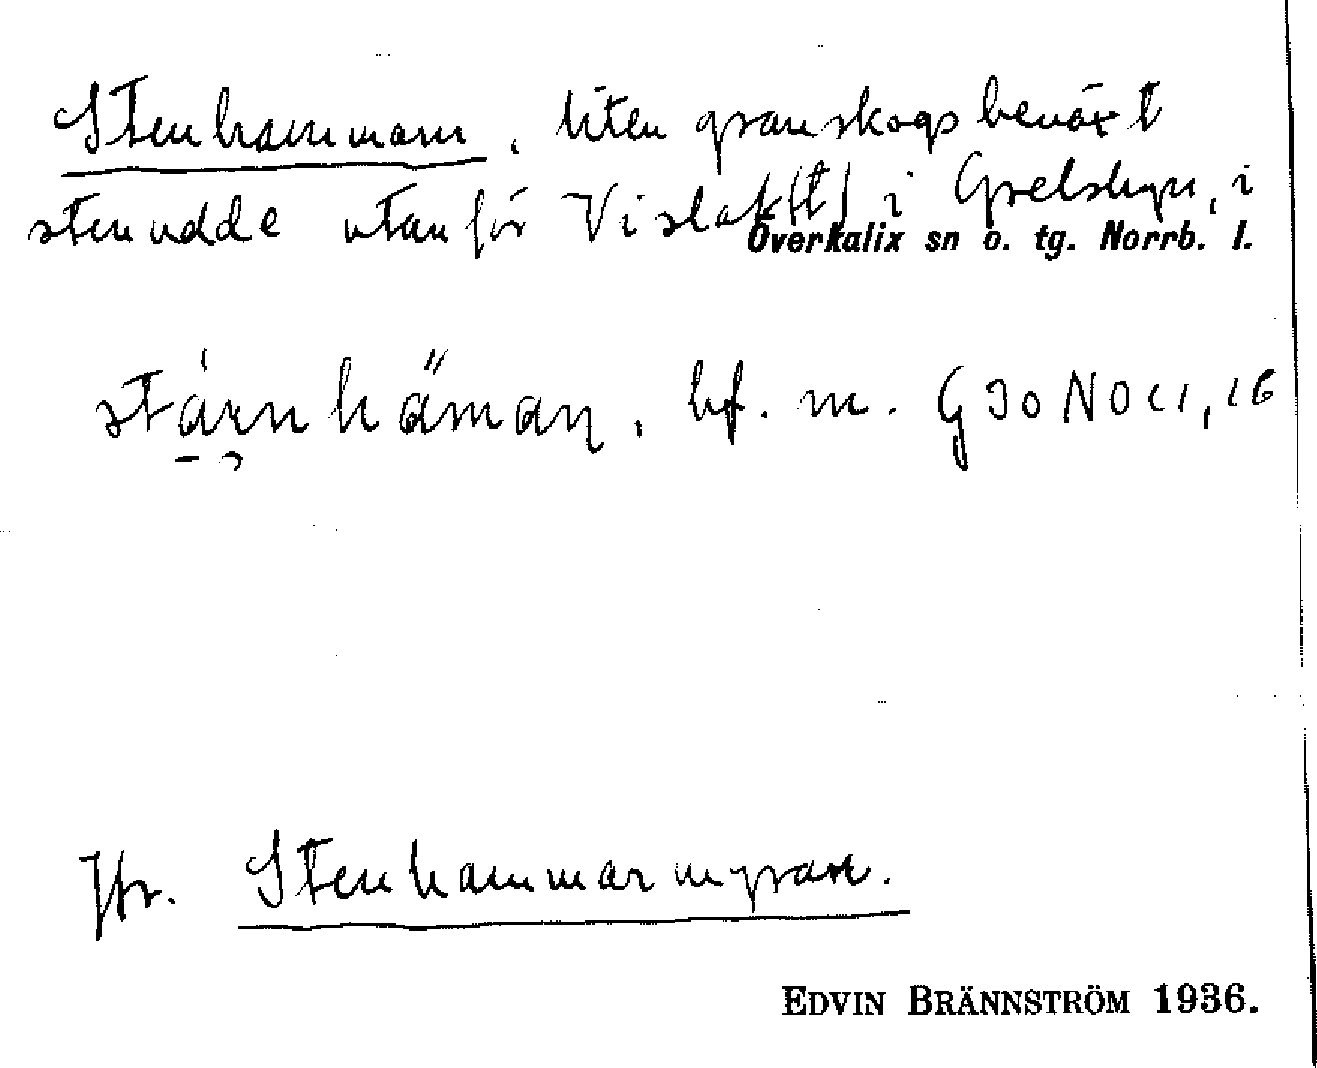 Stenhammarn, liten granskogsbeväxt
stenudde utanför Vislak(t) i Grelsbyn, i
Överkalix sn o. tg. Norrb. l.
bf. m. G 30 NO 11, 16
Jfr. Stenhammarmyran.
EDVIN BRÄNNSTRÖM 1936.